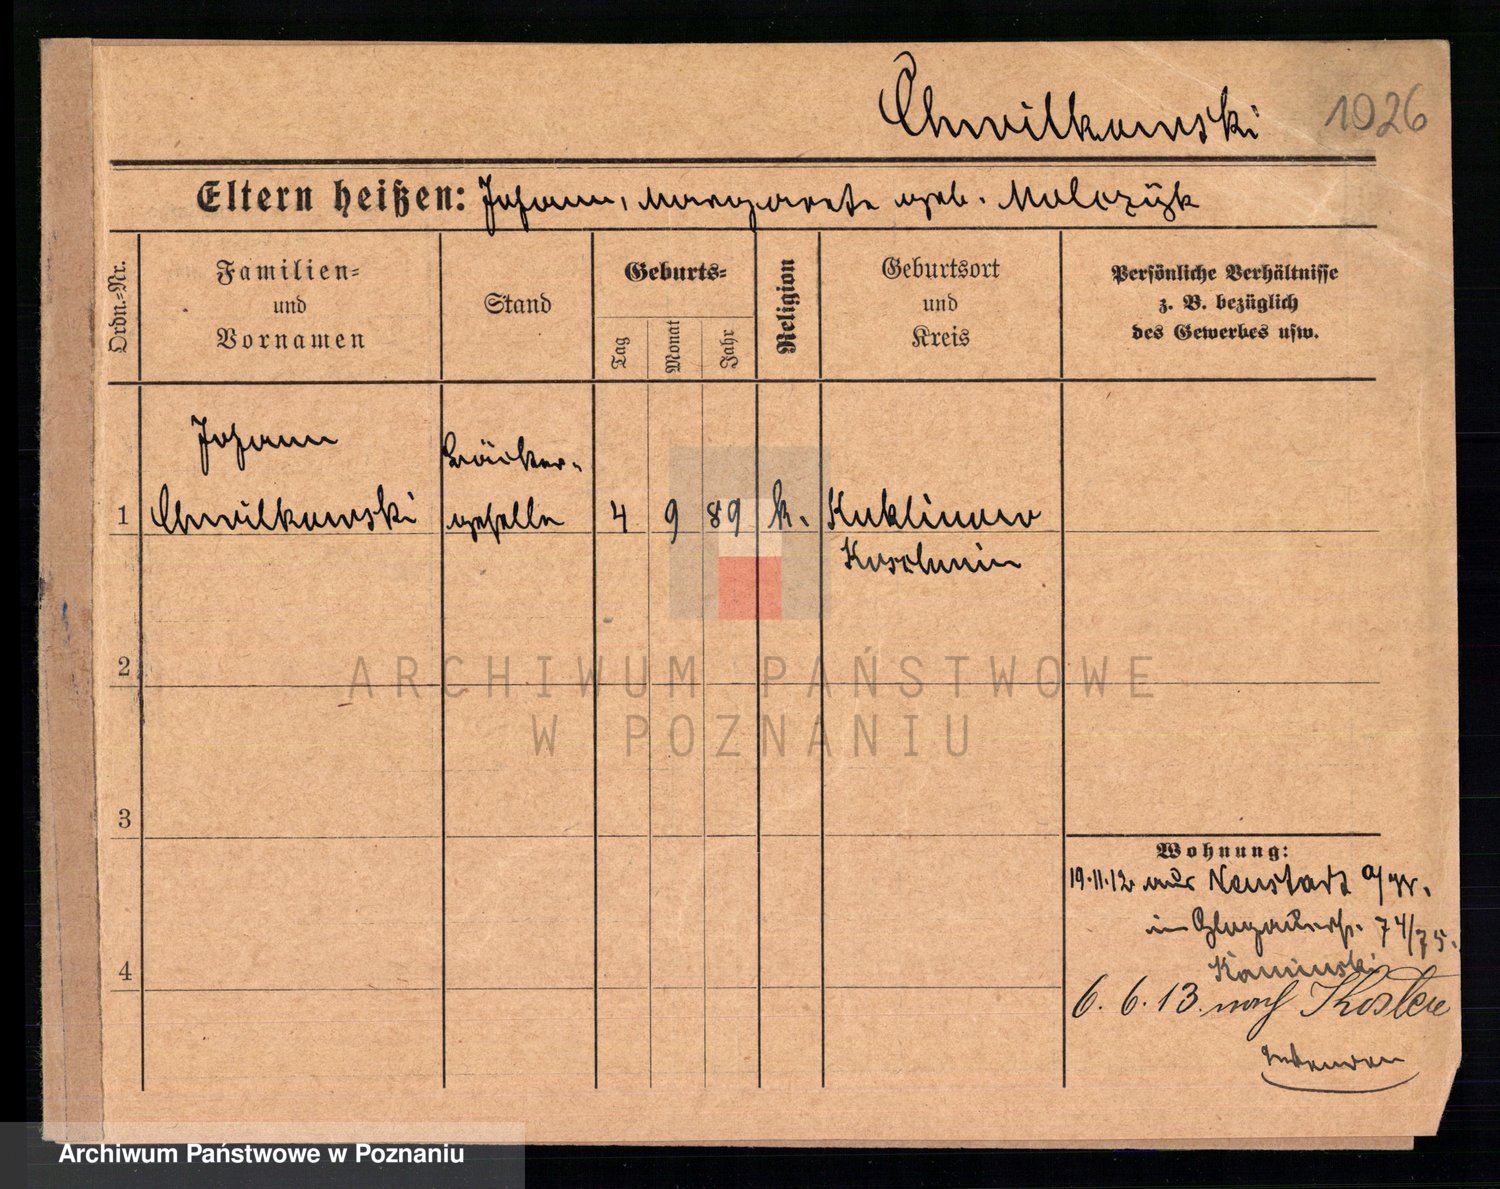 Chwilkowski 1926
Eltern heißen: Johann, Margarete geb. Malczyk
Ordn.-Nr.
Familien- und Vornamen
Stand
Geburts-
Tag
Monat
Jahr
Religion
Geburtsort und Kreis
Persönliche Verhältnisse
z. B. bezüglich
des Gewerbes usw.
Johann Bäcker-
1 Chwilkowski geselle 4 9 89 k. Kuklinow
Koschmin
2
ARCHIWUM PAŃSTWOWE
W POZNANIU
3
Wohnung:
19.11.12 aus Neustadt
in Glogauerstr. 74/75.
4
Kaminski
6.6.13. nach
Archiwum Państwowe w Poznaniu